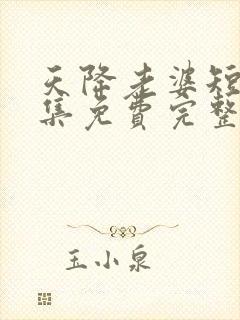 天降老婆短
集免费完整
玉小泉